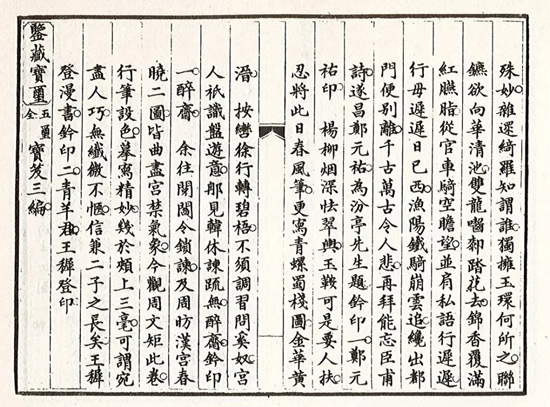 殊妙雜遝綺羅知謂誰獨擁玉環何所之聯
鑣欲向華清池雙龍嚙踏花去錦香覆滿
紅臙脂從官車騎空瞻望並肩私語行遲遲
行毋遲遲日已西漁陽鐵騎崩雲追纔出都
門便別離千古萬古令人悲再拜能忘臣甫
詩遂昌鄭元祐為汾亭先生題鈐印一鄭元
祐印 楊柳烟深怯翠輿玉鞍可是要人扶
忍將此日春風筆更寫青螺蜀棧圖金華黃
溍 按轡徐行轉碧梧不須調習問奚奴宮
人祇識盤遊意那見韓休諫疏無醉齋鈐印
一醉齋 余往閱閻令鎖諫及周昉漢宮春
曉二圖皆曲盡宮禁氣象今觀周文矩此卷
行筆設色摹寫精妙幾於頰上三毫可謂宛
盡人巧無纖微不愜信兼二子之長矣王穉
登漫書鈐印二青羊君王穉登印
鑒藏寶璽 五璽全 寶笈三編